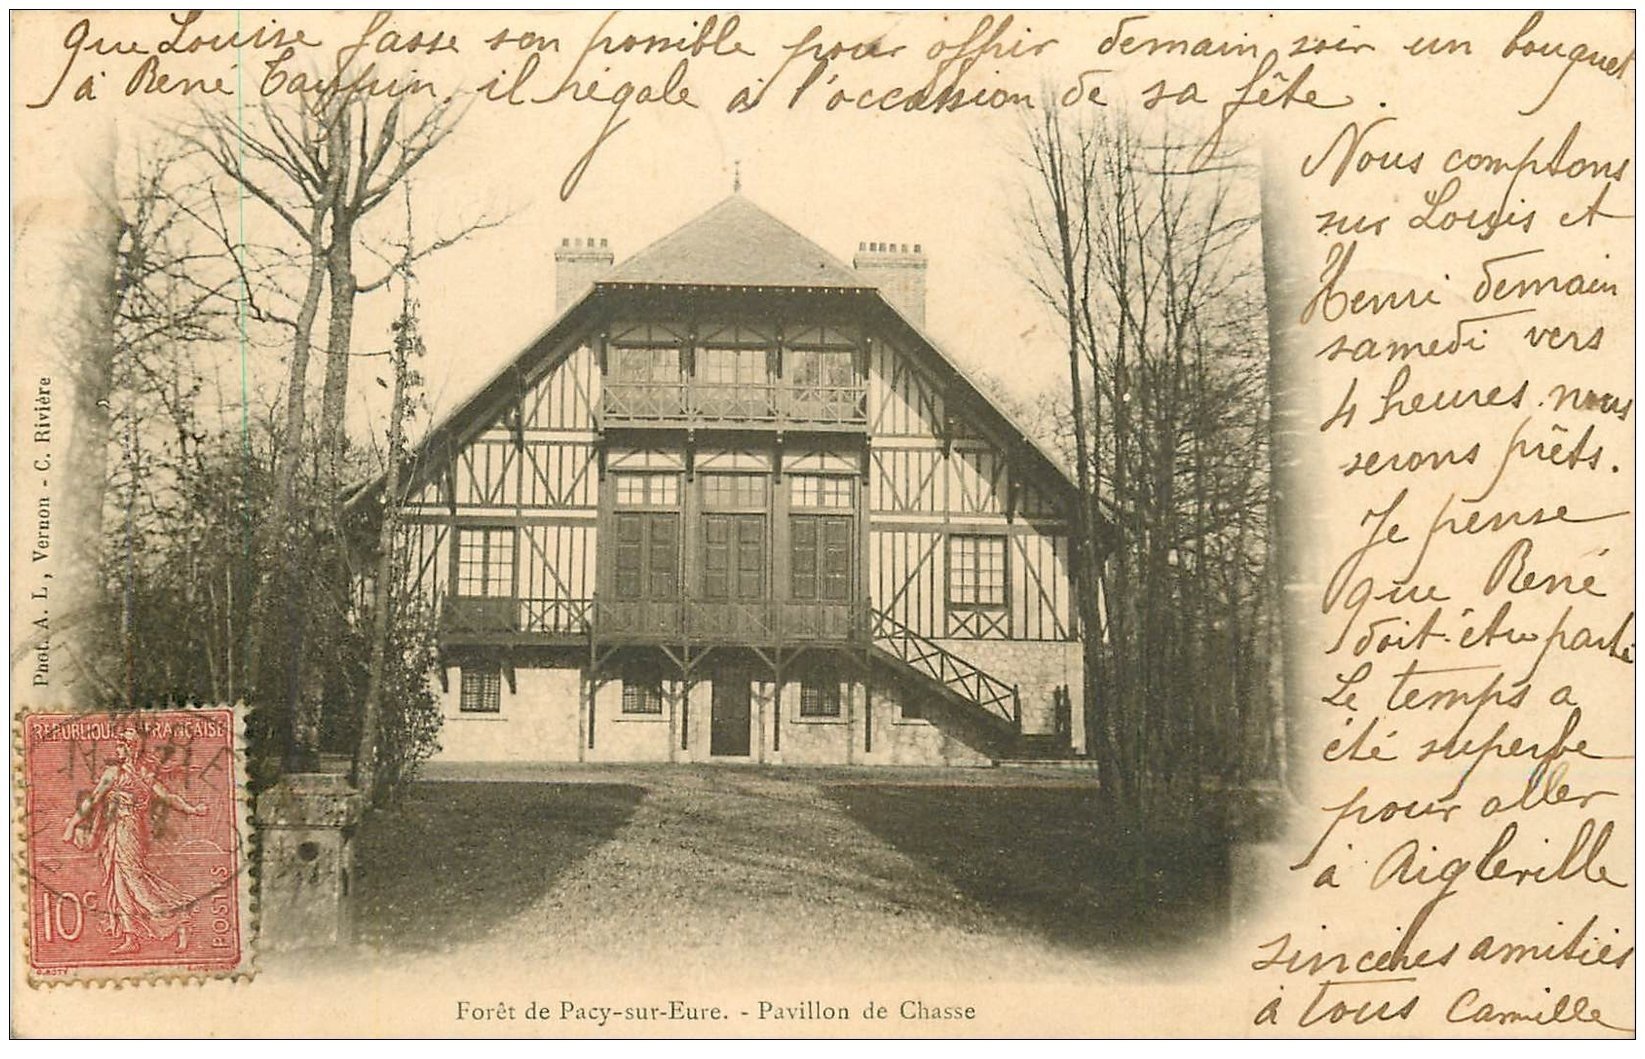 que Louise fasse son possible pour offrir demain soir un bouquet
à René Taupin, il régale à l'occasion de sa fête.
Nous comptons
sur Louis et
Henri demain
samedi vers
4 heures. nous
serons prêts.
Je pense
que René
doit être parti
Le temps a
été superbe
pour aller
à Aigleville
sincères amitiés
à tous Camille
Phot. A. L., Vernon - C. Rivière
REPUBLIQUE FRANÇAISE
10c
POSTES
O. ROTY
Forêt de Pacy-sur-Eure. - Pavillon de Chasse